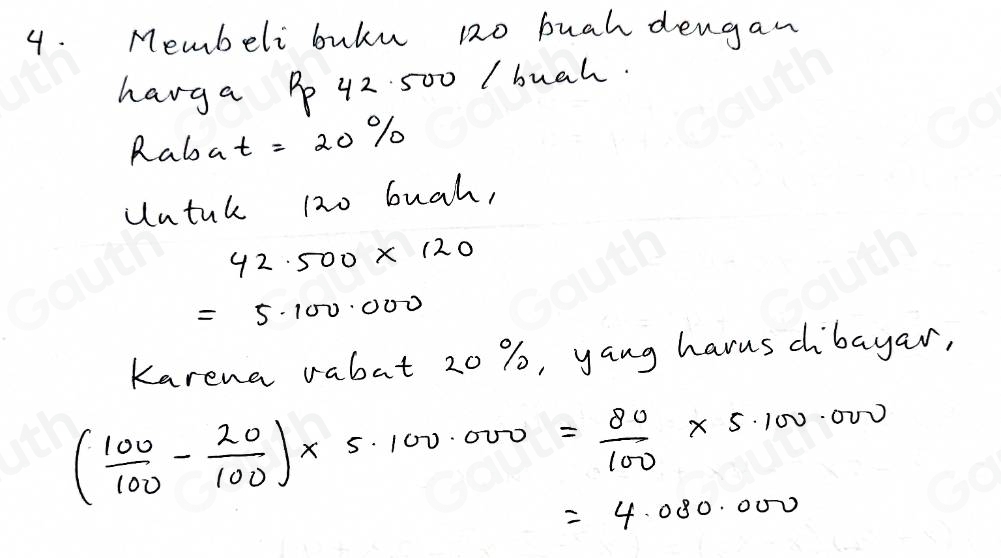 4. Membeli buku 120 buah dengan
harga Rp 42.500 / buah.
Rabat = 20%
Untuk 120 buah,
42.500 × 120
= 5.100.000
Karena rabat 20%, yang harus dibayar,
(100/100 - 20/100) × 5.100.000 = 80/100 × 5.100.000
= 4.080.000
Gauth